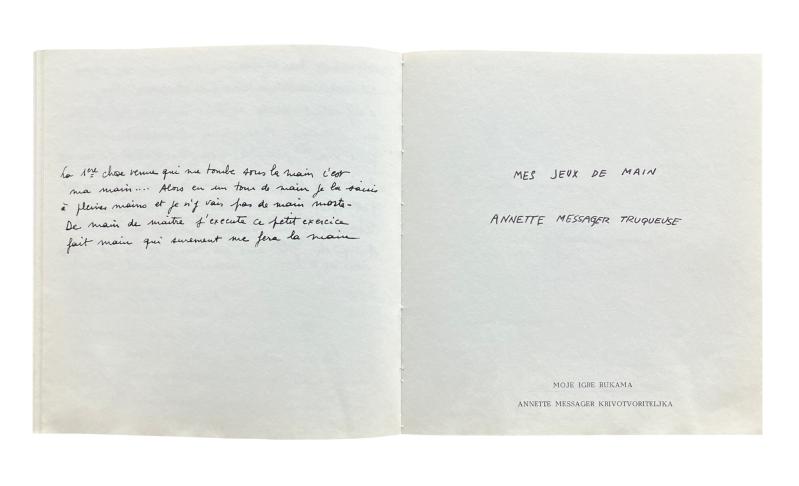 La 1ère chose venue qui me tombe sous la main c'est
ma main.... Alors en un tour de main je la saisis
à pleines mains et je n'y vais pas de main morte-
De main de maitre j'execute ce petit exercice
fait main qui surement me fera la main
MES JEUX DE MAIN
ANNETTE MESSAGER TRUQUEUSE
MOJE IGRE RUKAMA
ANNETTE MESSAGER KRIVOTVORITELJKA